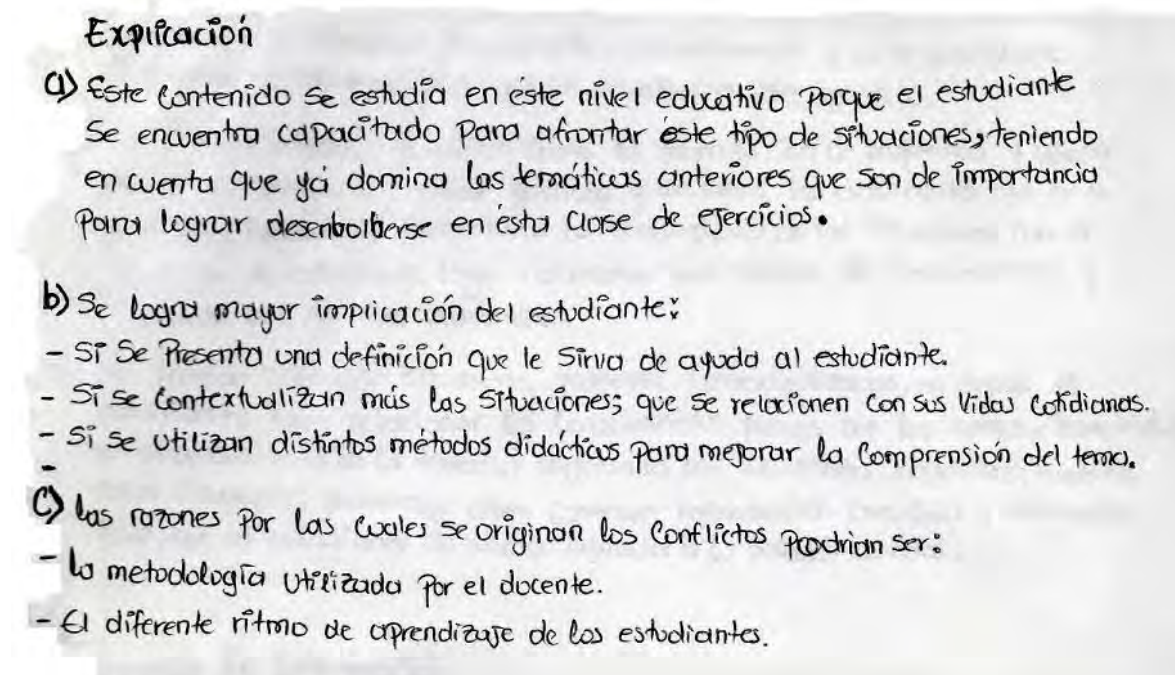 Explicación
a) Este contenido se estudia en éste nivel educativo porque el estudiante
se encuentra capacitado para afrontar éste tipo de situaciones, teniendo
en cuenta que yá domina las temáticas anteriores que son de importancia
para lograr desenbolberse en ésta clase de ejercicios.
b) Se logra mayor implicación del estudiante:
- Si se presenta una definición que le sirva de ayuda al estudiante.
- Si se contextualizan más las situaciones; que se relacionen con sus vidas cotidianas.
- Si se utilizan distintos métodos didácticos para mejorar la comprensión del tema.
-
c) las razones por las cuales se originan los conflictos podrian ser:
- la metodología utilizada por el docente.
- El diferente ritmo de aprendizaje de los estudiantes.